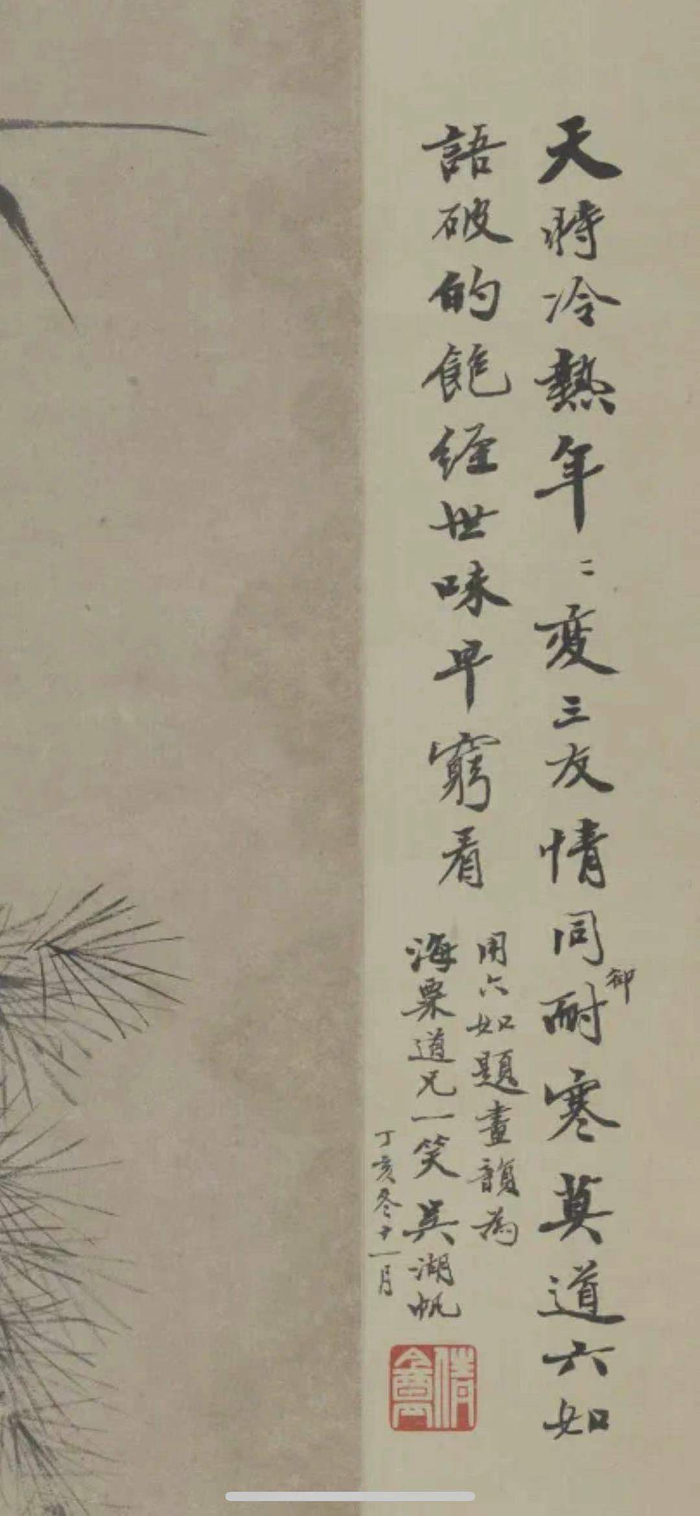 天時冷熱年〻変三友情同卻耐寒莫道六如
語破的飽經世味早窮看
用六如題畫韻為
海粟道兄一笑 吳湖帆
丁亥冬十一月
倩盦